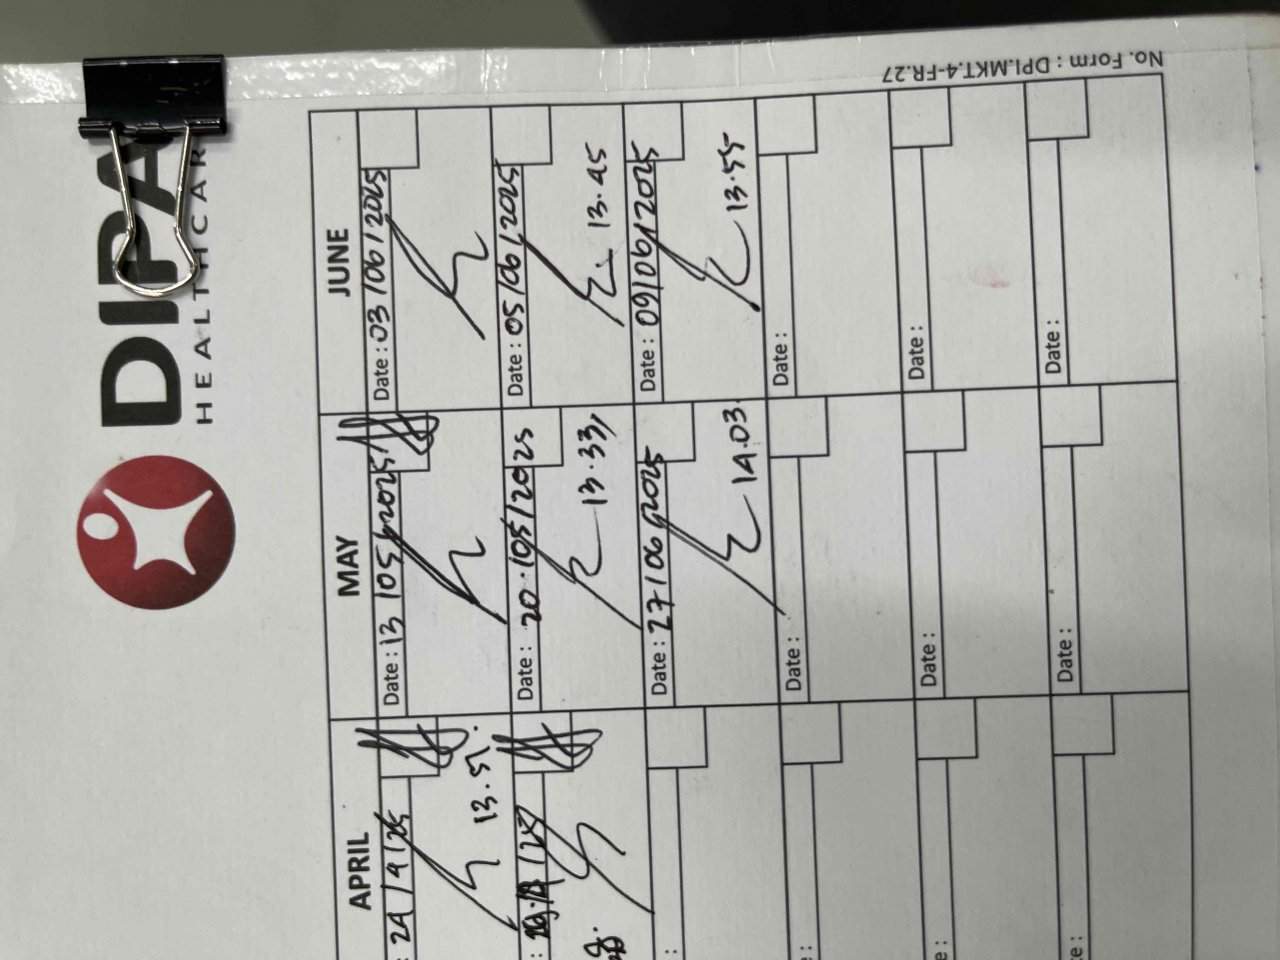 DIPA
HEALTHCAR
No. Form : DPI.MKT.4-FR.27
APRIL
MAY
JUNE
: 24/4/25
13.51.
Date : 13/05/2025
Date : 03/06/2025
Date : 20/05/2025
13.33
Date : 05/06/2025
13.45
Date : 27/06/2025
14.03
Date : 09/06/2025
13.55
:
Date :
Date :
e :
Date :
Date :
te :
Date :
Date :